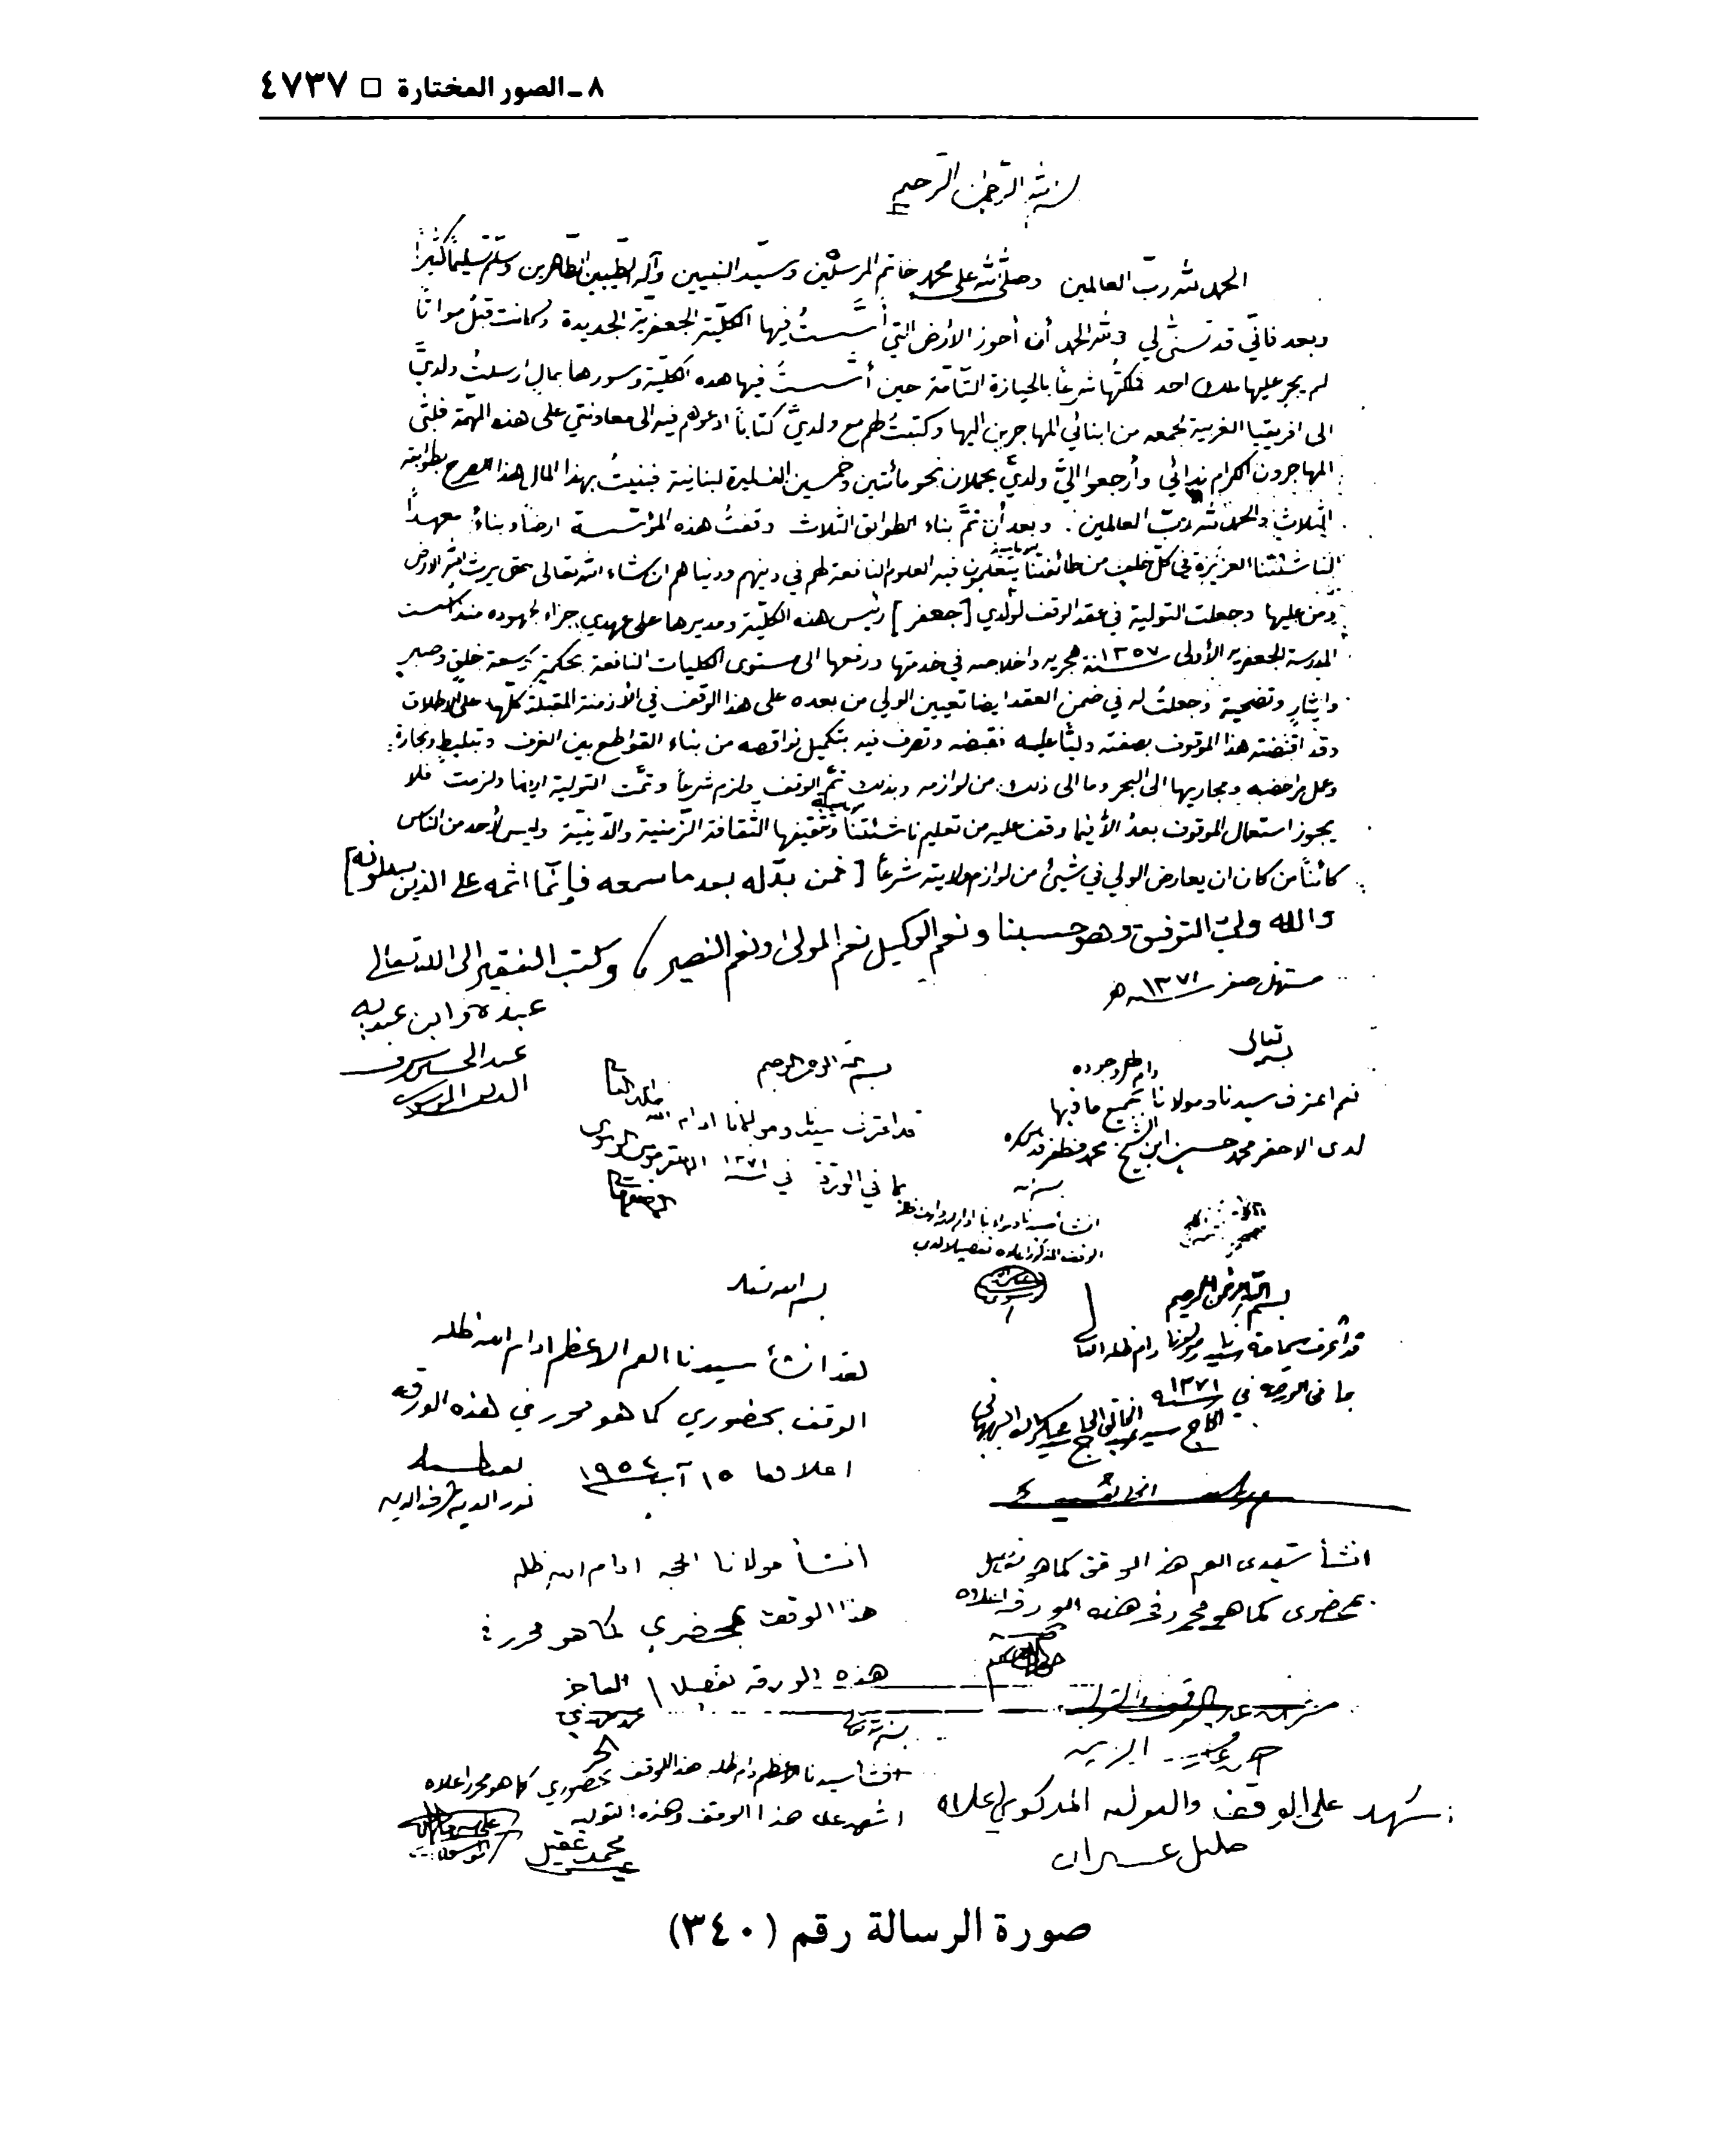 ٨ ـ الصور المختارة □ ٤٧٣٧
بسم الله الرحمن الرحيم
الحمد لله رب العالمين وصلّى الله على محمد خاتم المرسلين وسيّد النبيين وآله الطيبين الطاهرين وسلّم تسليمًا كثيرًا
وبعد فانّي قد تسنّى لي ولله الحمد أن أحوز الأرض التي أسّستُ فيها الكليّة الجعفرية الجديدة وكانت قبلُ مواتًا
لم يجر عليها ملك احد فملكتُها شرعًا بالحيازة التّامّة حين أسّستُ فيها هذه الكليّة وسورها بمالٍ ارسلتُ ولديَّ
الى افريقيا الغربية لجمعه من ابنائي المهاجرين اليها وكتبتُ لهم مع ولديَّ كتابًا ادعوهم فيه الى معاونتي على هذه المهمّة فلبّى
المهاجرون الكرام ندائي وأرجعوا اليَّ ولديَّ يحملان نحو مائتين وخمسين الف ليرة لبنانية فبنيتُ بهذا المال هذا الصرح بطوابقه
الثلاث والحمد لله ربّ العالمين . وبعد أن تمَّ بناء الطوابق الثلاث وقفتُ هذه المؤسّسة ارضًا وبناءً معهدًا
لناشئتنا العزيزة في كلّ خلف من طائفتنا يتعلمون فيه العلوم النافعة لهم في دينهم ودنياهم ان شاء الله تعالى حتى يرث الله الارض
ومن عليها وجعلت التولية في عقد الوقف لولدي [جعفر] رئيس هذه الكليّة ومديرها على عهدي جزاء لجهوده منذ اسست
المدرسة الجعفرية الأولى سنة ١٣٥٧ هجرية واخلاصه في خدمتها ورفعها الى مستوى الكليات النافعة بحكمة وسعة خلق وصبر
وايثار وتضحية وجعلتُ له في ضمن العقد ايضا تعيين الولي من بعده على هذا الوقف في الأزمنة المقبلة كلّها على الاطلاق
وقد اقبضته هذا الموقوف بصفته وليًّا عليه فقبضه وتصرف فيه بتكميل نواقصه من بناء القواطع بين الغرف وتبليط ونجارة
وعمل مراحضه ومجاريها الى البحر وما الى ذلك من لوازمه وبذلك تمَّ الوقف ولزم شرعًا وتمّت التولية ايضا ولزمت فلا
يجوز استعمال الموقوف بعدُ الّا فيما وقف عليه من تعليم ناشئتنا وتثقيفها الثقافة الزمنية والدّينيّة وليس لأحد من الناس
كائنًا من كان ان يعارض الولي في شيئ من لوازم ولايته شرعًا [فمن بدّله بعد ما سمعه فإنّما اثمه على الذين يبدلونه]
والله وليّ التوفيق وهو حسبنا ونعم الوكيل نعم المولى ونعم النصير / وكتب الفقير الى الله تعالى
مستهل صفر سنة ١٣٧١ هـ
عبده وابن عبديه
عبد الحسين شرف
الدين الموسوي
بسمه تعالى
نعم اعترف سيدنا ومولانا دام ظل وجوده بجميع ما فيها
لدى الاحقر محمد حسين ابن الشيخ محمد مظفر قدس سره
بسم الله الرحمن الرحيم
قد اعترف سيدنا ومولانا ادام الله ظله العالي
بما في الورقة في سنة ١٣٧١ الاحقر موسى الموسوي
انشأ سيدنا ومولانا ادام الله ظله
الوقف المذكور اعلاه تفصيلا لدي
بسم الله الرحمن الرحيم
قد اعترف سماحة سيدنا ومولانا دام ظله العالي
بما في الورقة في سنة ١٣٧١
بسم الله تعالى
لقد انشأ سيدنا العم الاعظم ادام الله ظله
الوقف بحضوري كما هو محرر في هذه الورقة
اعلاها ١٥ آب سنة ١٩٥٢
نور الدين شرف الدين
انشأ سيدي العم هذا الوقف كما هو
بحضوري كما هو محرر في هذه الورقة اعلاه
انشأ مولانا الحجه ادام الله ظله
هذا الوقف بحضوري كما هو محرر في
هذه الورقة تفصيلا / العاجز
انشأ سيدنا الاعظم دام ظله هذا الوقف بحضوري كما هو محرر اعلاه
اشهد على هذا الوقف وهذه التولية
محمد عقيل
شهد على الوقف والتوليه المذكورين اعلاه
خليل عسيران
صورة الرسالة رقم (٣٤٠)